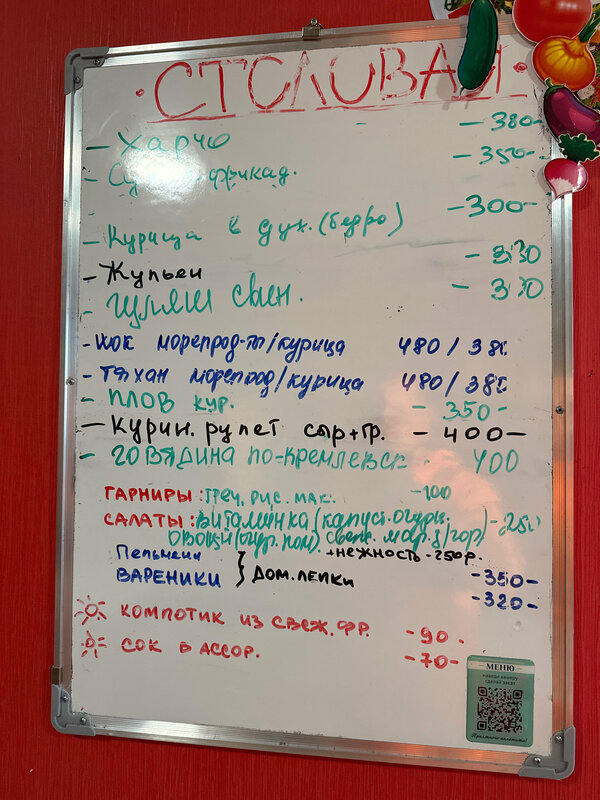 СТОЛОВАЯ
- Харчо - 380-
- Суп фрикад. - 350-
- Курица в дух. (бедро) - 300-
- Жульен - 330
- гуляш свин. - 330
- WOK морепрод-ты/курица 480/380
- Тяхан морепрод/курица 480/380
- ПЛОВ кур. - 350-
- Курин. рулет сыр+гр. - 400-
- говядина по-кремлевск. 400
ГАРНИРЫ: греч. рис. мак. -100
САЛАТЫ: Витаминка (капуст. огурц.) - 250
Овощи (огур. пом) свекл. мар.
+нежность - 250р.
Пельмени - 350-
ВАРЕНИКИ } ДОМ. ЛЕПКИ - 320-
КОМПОТИК ИЗ СВЕЖ. ФР. - 90.
СОК В АССОР. - 70-
МЕНЮ
наведи камеру
сделай заказ
Приятного аппетита!